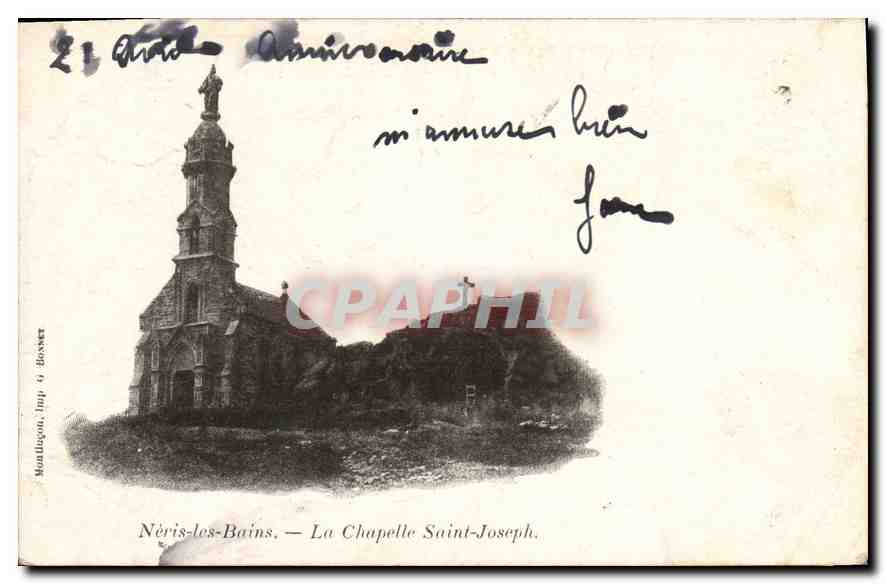 21 Avril Anniversaire
m'amuse bien
CPAPHIL
Montluçon, Imp G BONNET
Néris-les-Bains. — La Chapelle Saint-Joseph.